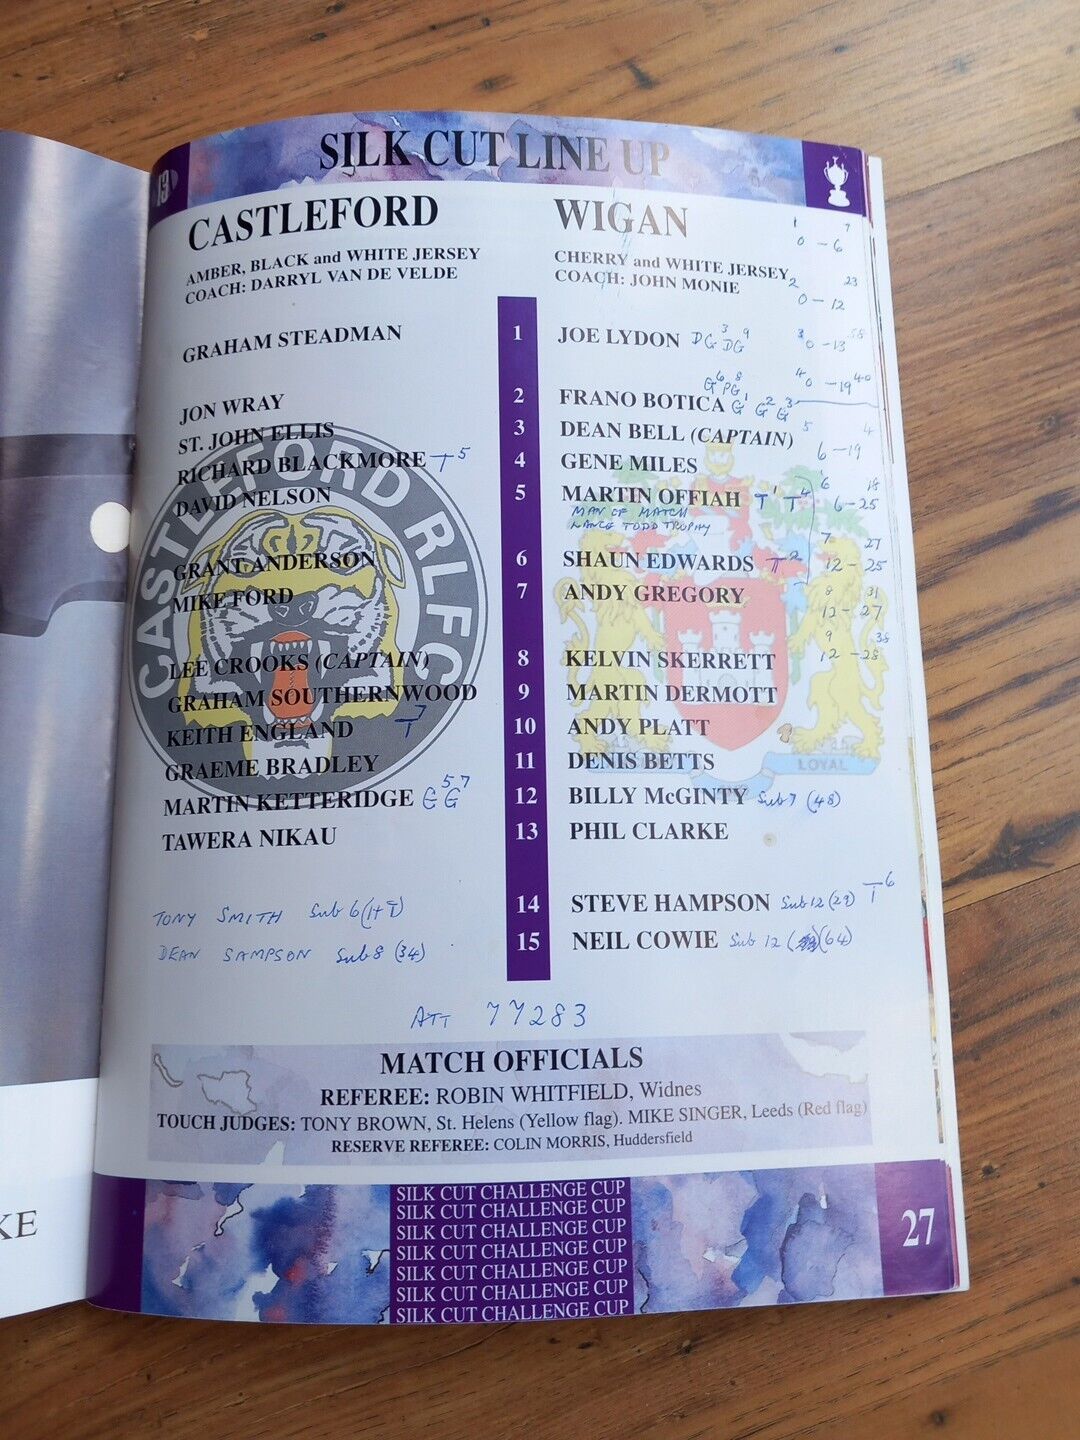 SILK CUT LINE UP
CASTLEFORD
AMBER, BLACK and WHITE JERSEY
COACH: DARRYL VAN DE VELDE
WIGAN
CHERRY and WHITE JERSEY
COACH: JOHN MONIE
1 7
0 - 6
2 23
0 - 12
3 38
0 - 13
4 40
0 - 19
5 4
6 - 19
6 18
6 - 25
7 27
12 - 25
8 31
12 - 27
9 38
12 - 28
GRAHAM STEADMAN 1 JOE LYDON DG 3 DG 9
G 6 PG 8
JON WRAY 2 FRANO BOTICA G 1 G 2 G 3
ST. JOHN ELLIS 3 DEAN BELL (CAPTAIN)
RICHARD BLACKMORE T 5 4 GENE MILES
DAVID NELSON 5 MARTIN OFFIAH T 1 T 4
MAN OF MATCH
LANCE TODD TROPHY
GRANT ANDERSON 6 SHAUN EDWARDS T 2
MIKE FORD 7 ANDY GREGORY
LEE CROOKS (CAPTAIN) 8 KELVIN SKERRETT
GRAHAM SOUTHERNWOOD 9 MARTIN DERMOTT
KEITH ENGLAND T 7 10 ANDY PLATT
GRAEME BRADLEY 11 DENIS BETTS
MARTIN KETTERIDGE G 5 G 7 12 BILLY McGINTY Sub 7 (48)
TAWERA NIKAU 13 PHIL CLARKE
TONY SMITH Sub 6 (HT) 14 STEVE HAMPSON Sub 12 (29) T 6
DEAN SAMPSON Sub 8 (34) 15 NEIL COWIE Sub 12 (64)
CASTLEFORD RLFC
LOYAL
ATT 77283
MATCH OFFICIALS
REFEREE: ROBIN WHITFIELD, Widnes
TOUCH JUDGES: TONY BROWN, St. Helens (Yellow flag). MIKE SINGER, Leeds (Red flag)
RESERVE REFEREE: COLIN MORRIS, Huddersfield
SILK CUT CHALLENGE CUP
SILK CUT CHALLENGE CUP
SILK CUT CHALLENGE CUP
SILK CUT CHALLENGE CUP
SILK CUT CHALLENGE CUP
SILK CUT CHALLENGE CUP
SILK CUT CHALLENGE CUP
27
KE